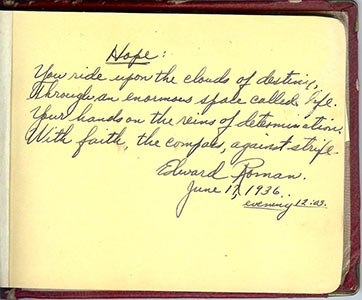 Hope:
You ride upon the clouds of destiny,
Through an enormous space called life.
Your hands on the reins of determination,
With faith, the compass, against strife.
Edward Roman.
June 17, 1936.
evening 12:03.